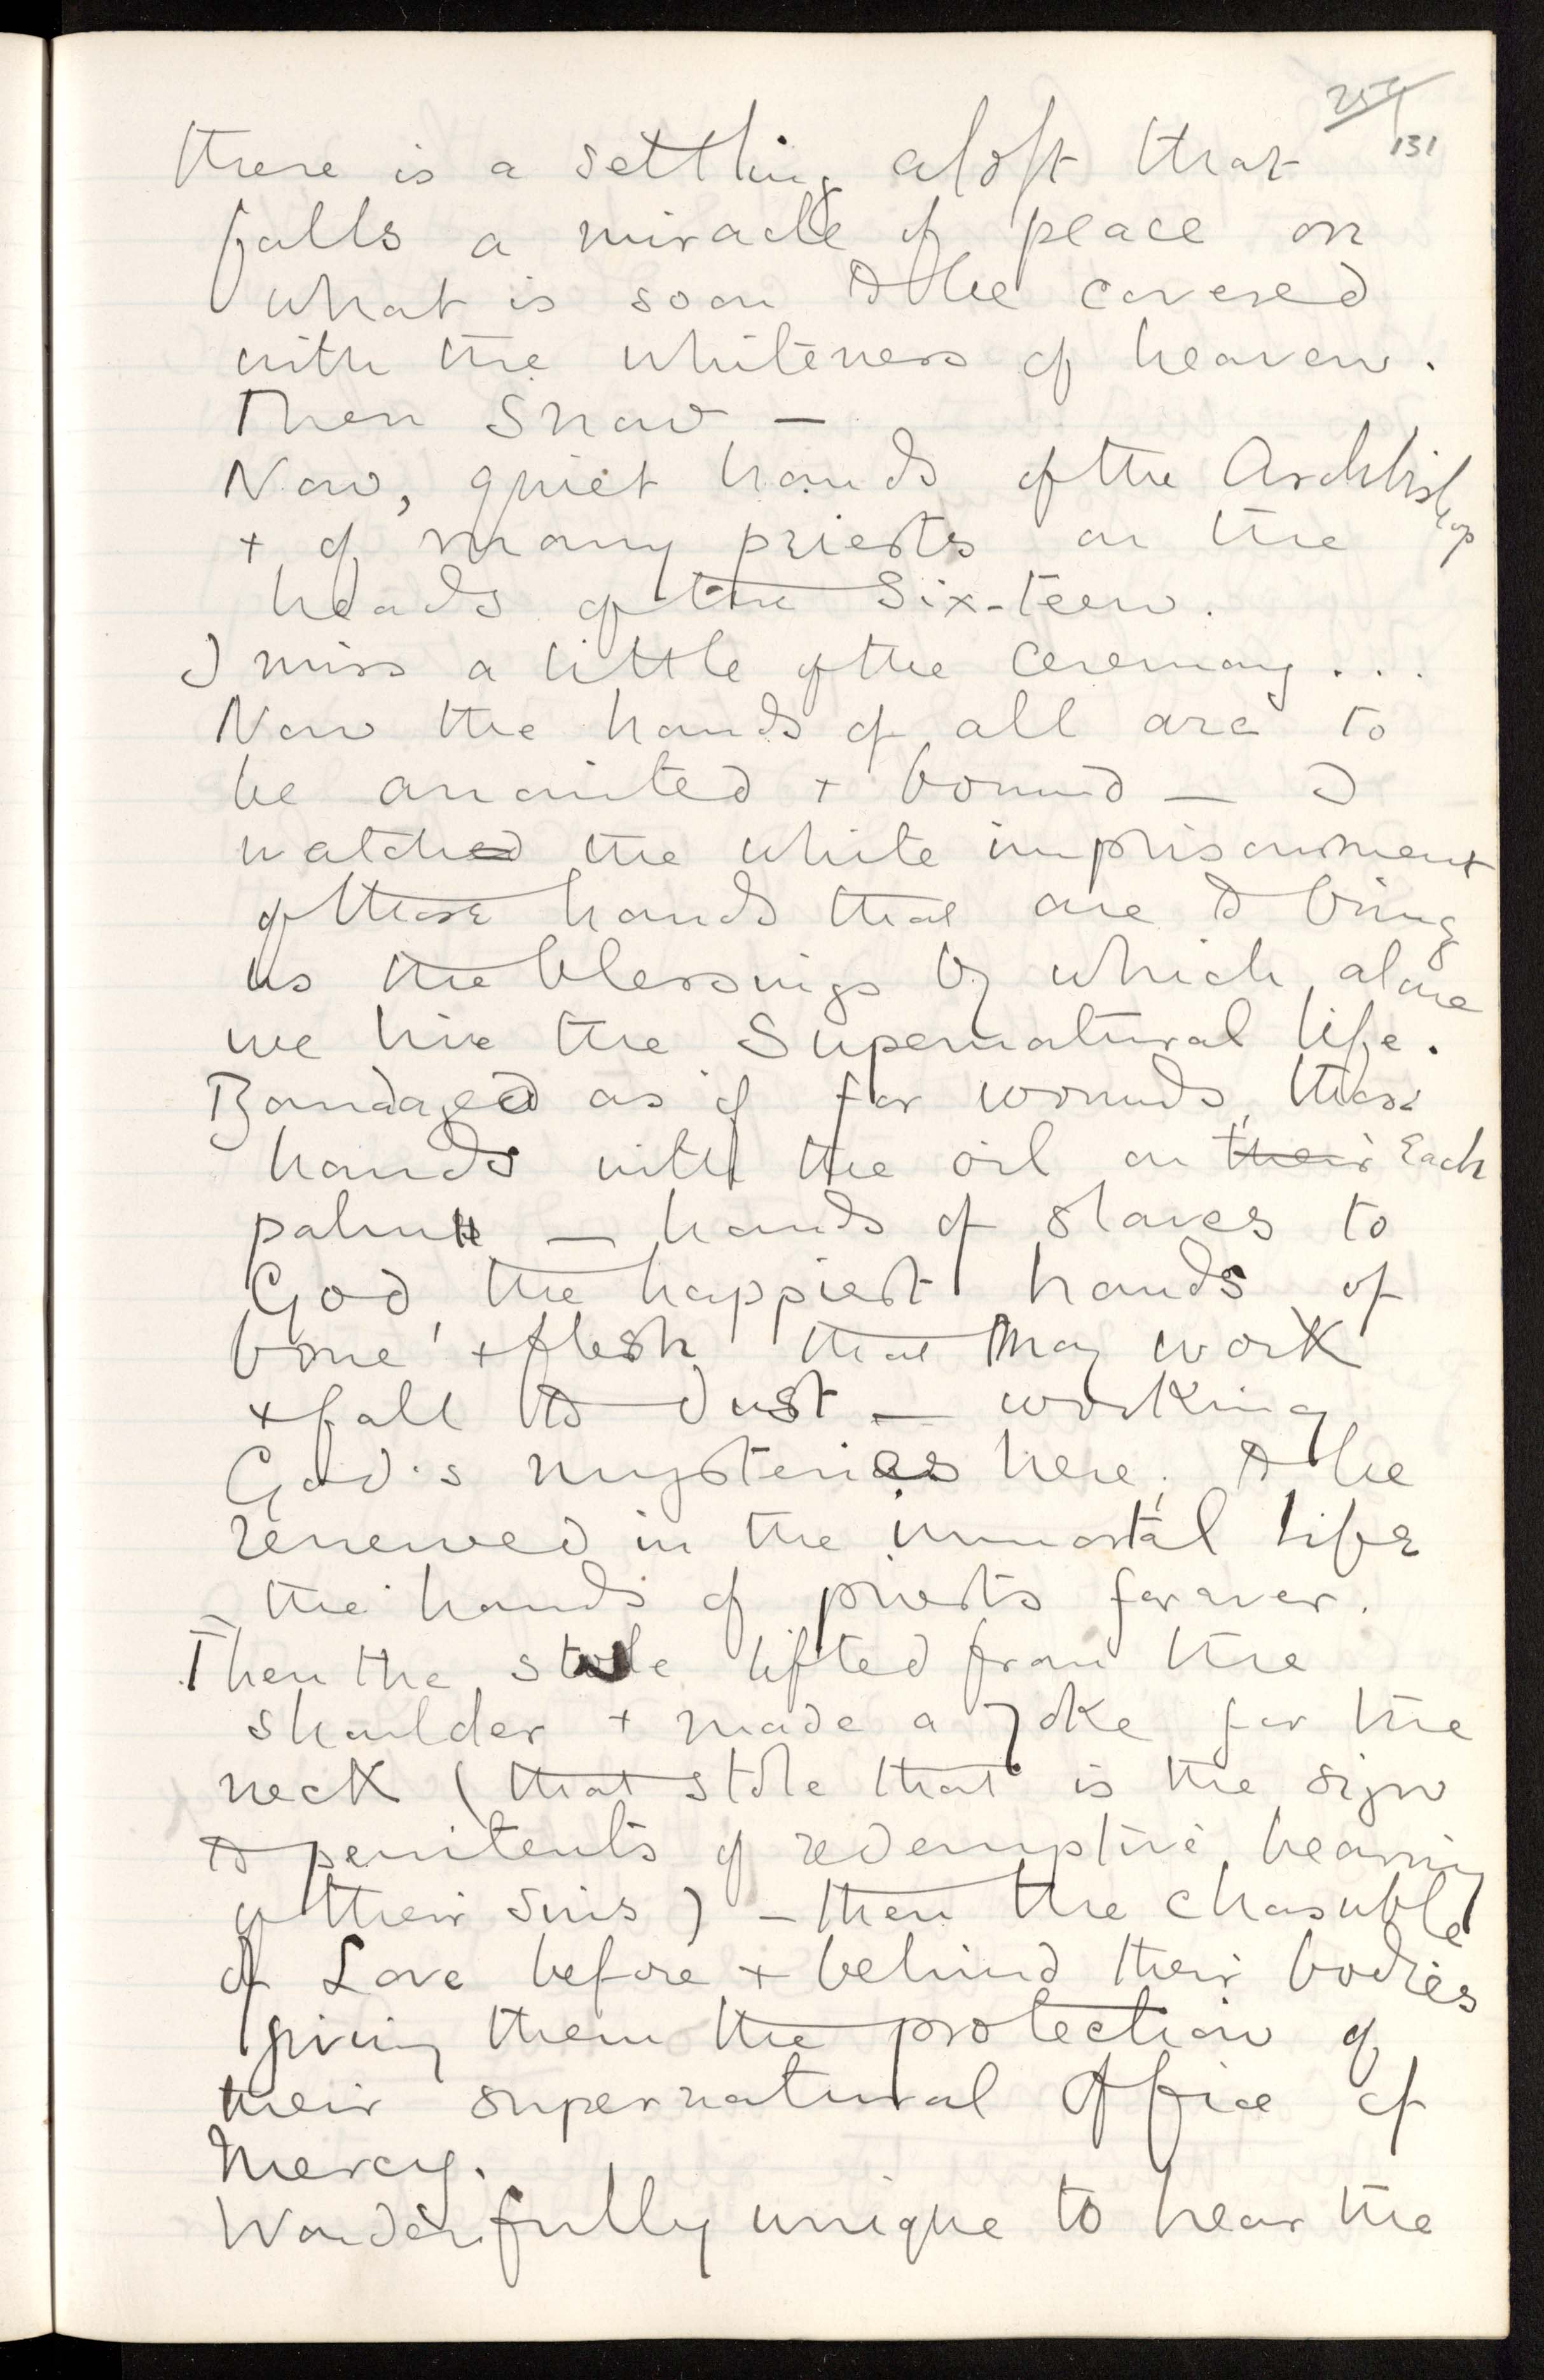 259
131
there is a settling aloft that
falls a miracle of peace on
what is soon to be covered
with the whiteness of heaven.
Then Snow —
Now, quiet hands of the Archbishop
+ of many priests on the
heads of the Six-teen.
I miss a little of the ceremony...
Now the hands of all are to
be anointed + bound — I
watched the white imprisonment
of those hands that are to bring
us the blessings by which alone
we live the Supernatural life.
Bandaged as if for wounds, these
hands with the oil on their Each
palm — hands of slaves to
God, the happiest hands of
bone + flesh that may work
+ fall to dust — working
God's mysteries here, to be
renewed in the immortal life
the hands of priests forever.
Then the stole lifted from the
shoulder + made a yoke for the
neck (that stole that is the sign
to penitents of redemptive hearing
of their sins) – then the chasuble
of Love before + behind their bodies
giving them the protection of
their supernatural Office of
Mercy.
Wonderfully unique to hear the